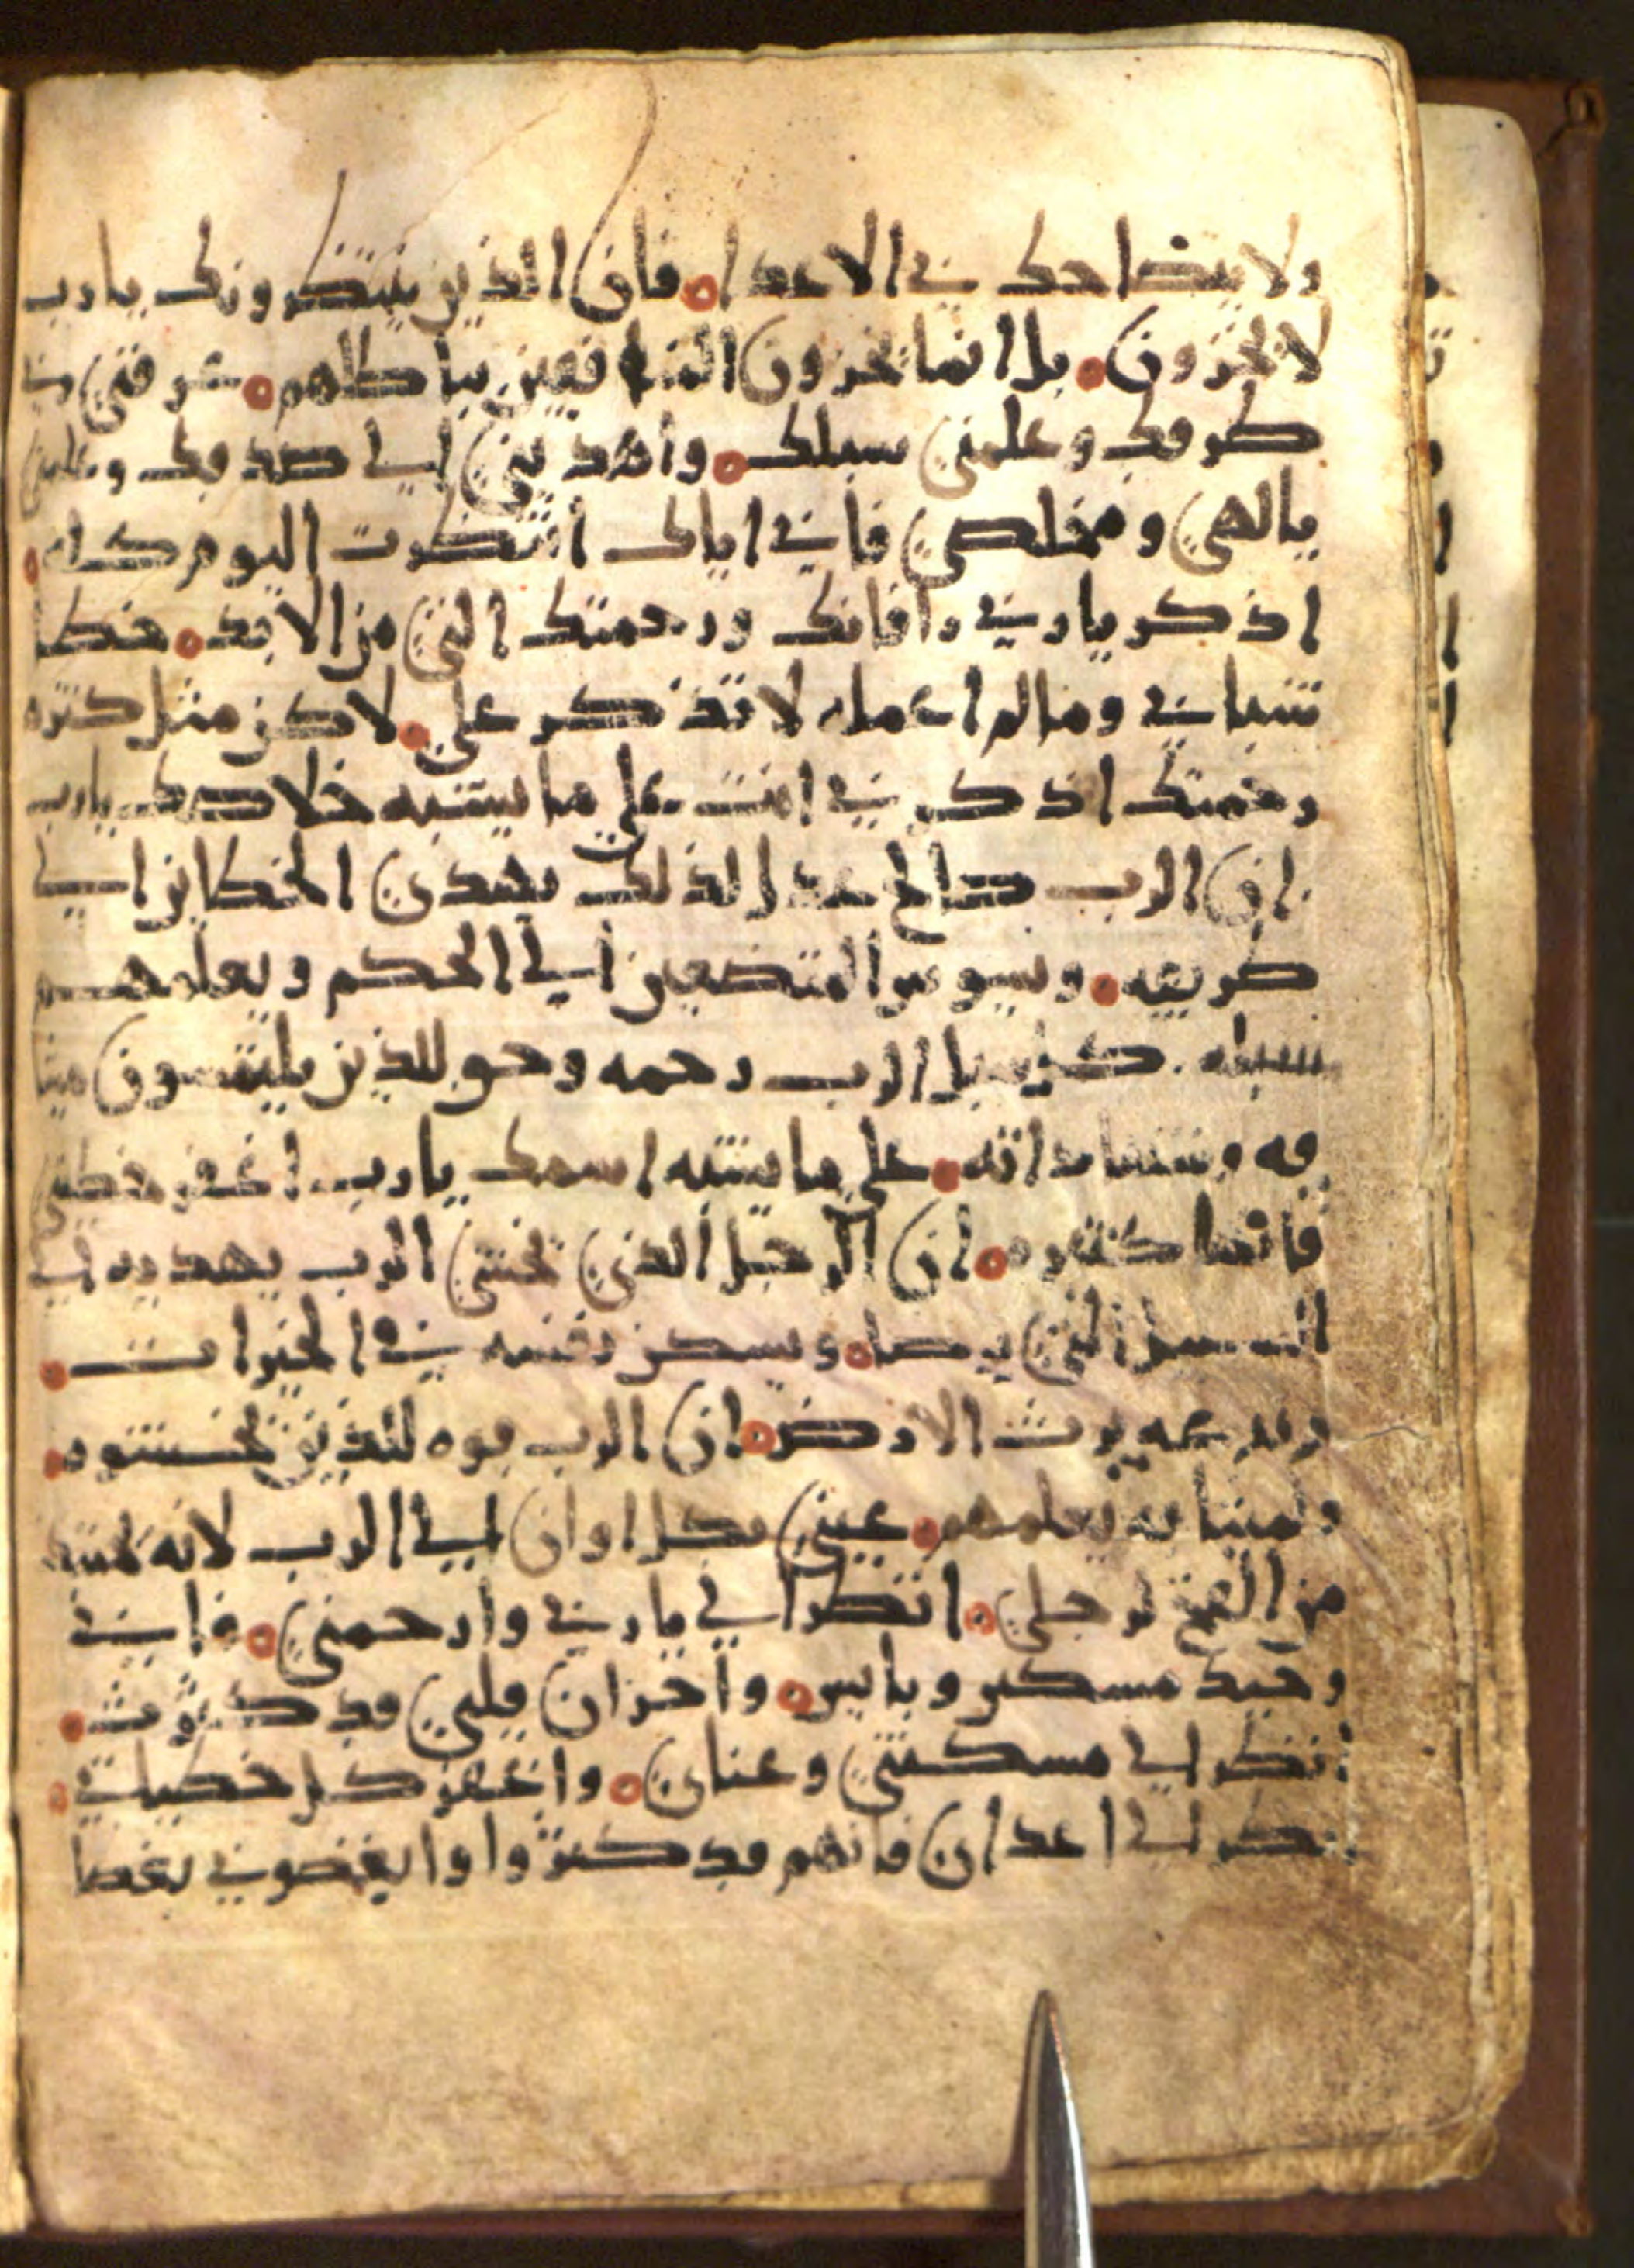 ولا يتضاحك بي الاعدا ٥ فان الذين ينتظرونك يارب
لا يخزون ٥ بل انما يخزون المنافقين بباطلهم ٥ عرفني يا
طرقك وعلمني سبلك ٥ واهديني الي صدقك وعلمني
يالهي ومخلصي فاني اياك انتظرت اليوم كله ٥
اذكر يا ربي رافاتك ورحمتك التي من الابد ٥ خطا
شبابي ومالم اعمله لا تذكر علي ٥ لاكن مثل كثره
رحمتك اذكرني انت علي ما يشبه خلاصك يا رب
ان الرب صالح عدل لذلك يهدي الخطاين الي
طريقه ٥ ويسوس المتضعين الي الحكم ويعلمهم
سبله . كل سبل الرب رحمه وحق للذين يلتمسون ميثا
قه وشهاداته ٥ علي ما يشبه اسمك يا رب اغفر خطيتي
فانها كثيره ٥ ان الرجل الذي يخشي الرب يهديه الي
السبيل التي يرضا ٥ ويسكن نفسه في الخيرات ٥
وزرعه يرث الارض ٥ ان الرب قوه للذين يخشوه ٥
وميثاقه يعلمهم ٥ عيني بكل اوان الي الرب لانه يجتبذ
من الفخ رجلي ٥ انظر الي يا ربي وارحمني ٥ فاني
وحيد مسكين وبايس ٥ واحزان قلبي قد كثرت ٥
انظر الي مسكنتي وعناي ٥ واغفر كل خطياتي ٥
انظر الي اعداي فانهم قد كثروا وابغضوني بغضا